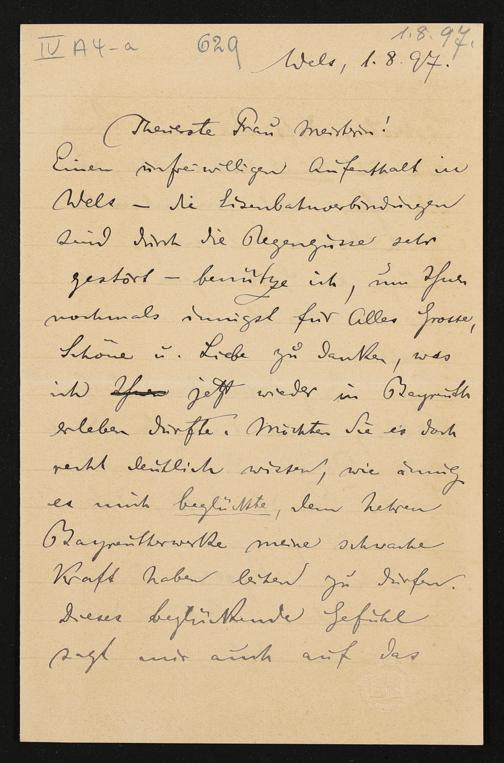 IV A4-a 629 1.8.97.
Wels, 1.8.97.
Theuerste Frau Meisterin!
Einen unfreiwilligen Aufenthalt in
Wels – die Eisenbahnverbindungen
sind durch die Regengüsse sehr
gestört – benütze ich, um Ihnen
nochmals innigst für Alles Grosse,
Schöne u. Liebe zu danken, was
ich Ihnen jetzt wieder in Bayreuth
erleben durfte. Möchten Sie es doch
recht deutlich wissen, wie innig
es mich beglückte, dem hehren
Bayreutherwerke meine schwache
Kraft haben leihen zu dürfen.
Dieses beglückende Gefühl
sagt mir auch auf das